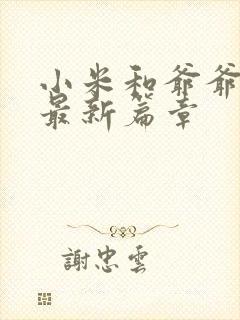 小米和爺爺
最新篇章
謝忠雲